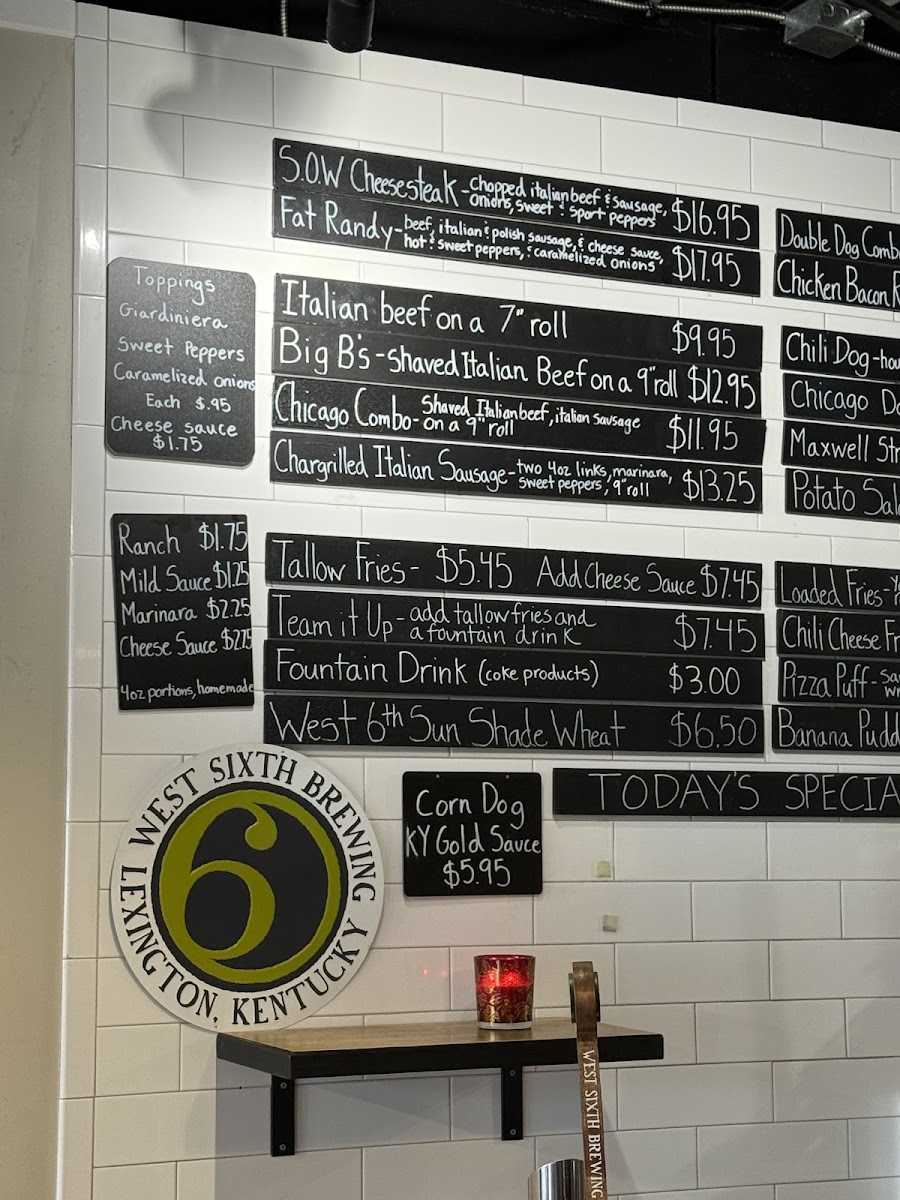 S.O.W Cheesesteak - Chopped italian beef & sausage,
onions, sweet & sport peppers $16.95
Fat Randy - beef, italian & polish sausage, & cheese sauce,
hot & sweet peppers, & caramelized onions $17.95
Double Dog Comb
Chicken Bacon R
Toppings
Giardiniera
Sweet Peppers
Caramelized onions
Each $.95
Cheese sauce
$1.75
Italian beef on a 7" roll $9.95
Big B's - shaved Italian Beef on a 9" roll $12.95
Chicago Combo - Shaved Italian beef, italian sausage
on a 9" roll $11.95
Chargrilled Italian Sausage - two 4oz links, marinara,
sweet peppers, 9" roll $13.25
Chili Dog - hou
Chicago Do
Maxwell Str
Potato Sal
Ranch $1.75
Mild Sauce $1.25
Marinara $2.25
Cheese Sauce $2.75
4oz portions, homemade
Tallow Fries - $5.45 Add Cheese Sauce $7.45
Team it Up - add tallow fries and
a fountain drink $7.45
Fountain Drink (coke products) $3.00
West 6th Sun Shade Wheat $6.50
Loaded Fries -
Chili Cheese Fr
Pizza Puff - sa
Banana Pudd
TODAY'S SPECIA
Corn Dog
KY Gold Sauce
$5.95
WEST SIXTH BREWING
6
LEXINGTON, KENTUCKY
WEST SIXTH BREWING